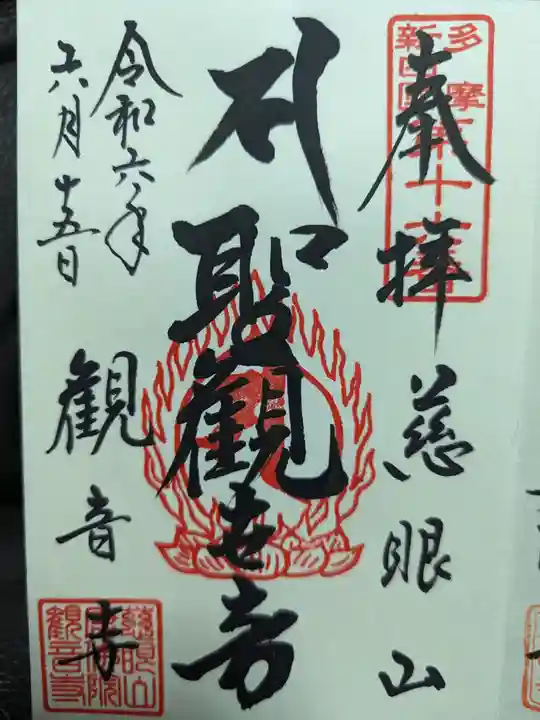 奉拝 慈眼山
多摩
新四国
聖觀世音
令和六年
六月十五日
觀音寺
慈眼山
唐仏院
觀音寺